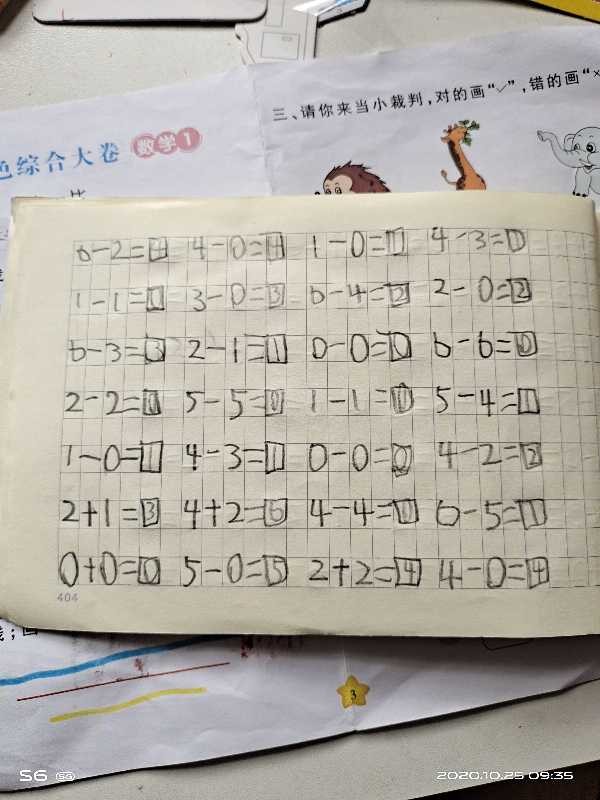 三、请你来当小裁判,对的画“✓”,错的画“×
色综合大卷 数学1
6-2=4 4-0=4 1-0=1 4-3=1
1-1=0 3-0=3 6-4=2 2-0=2
6-3=3 2-1=1 0-0=0 6-6=0
2-2=0 5-5=0 1-1=0 5-4=1
1-0=1 4-3=1 0-0=0 4-2=2
2+1=3 4+2=6 4-4=0 6-5=1
0+0=0 5-0=5 2+2=4 4-0=4
404
3
S6 5G
2020.10.25 09:35